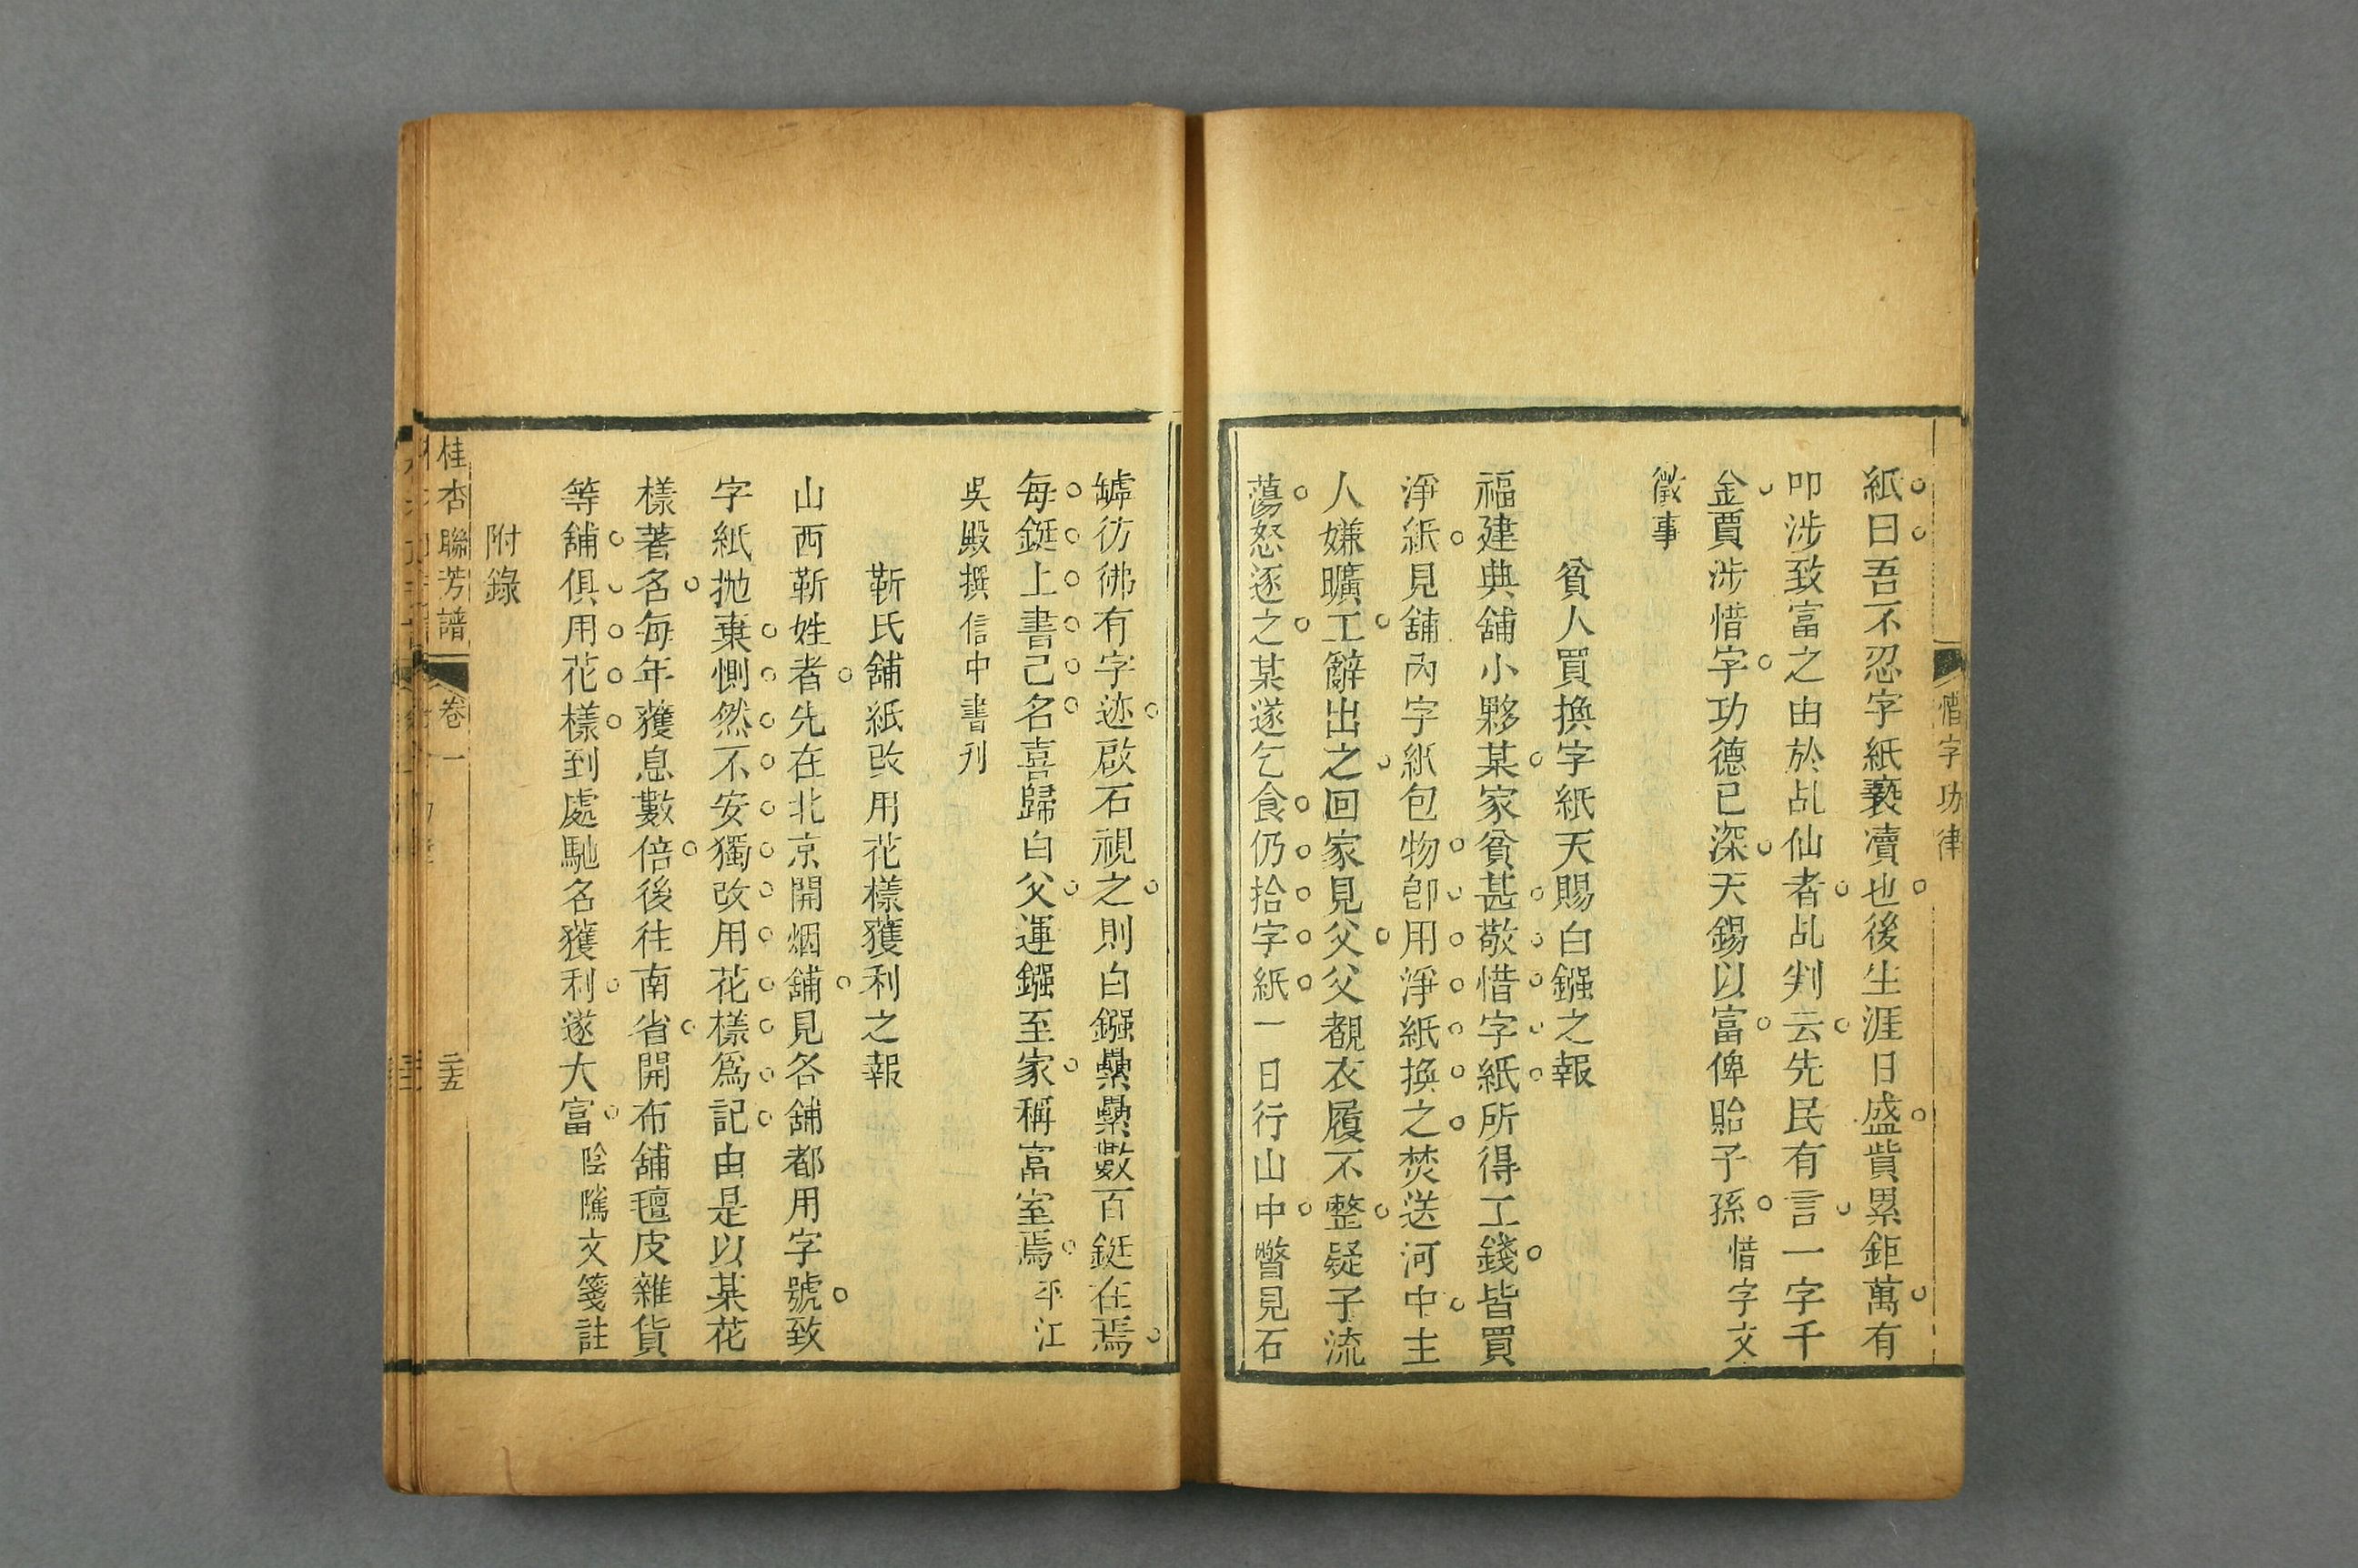 惜字功律
紙曰吾不忍字紙褻瀆也後生涯日盛貲累鉅萬有
叩涉致富之由於乩仙者乩判云先民有言一字千
金賈涉惜字功德已深天錫以富俾貽子孫惜字文
徵事
貧人買換字紙天賜白鏹之報
福建典舖小夥某家貧甚敬惜字紙所得工錢皆買
淨紙見舖內字紙包物卽用淨紙換之焚送河中主
人嫌曠工辭出之回家見父父覩衣履不整疑子流
蕩怒逐之某遂乞食仍拾字紙一日行山中瞥見石
罅彷彿有字迹啟石視之則白鏹纍纍數百鋌在焉
每鋌上書己名喜歸白父運鏹至家稱富室焉平江
吳殿撰信中書刋
靳氏舖紙改用花樣獲利之報
山西靳姓者先在北京開烟舖見各舖都用字號致
字紙抛棄惻然不安獨改用花樣爲記由是以某花
樣著名每年獲息數倍後往南省開布舖氊皮雜貨
等舖俱用花樣到處馳名獲利遂大富陰隲文箋註
附錄
桂杏聯芳譜
卷一
二五